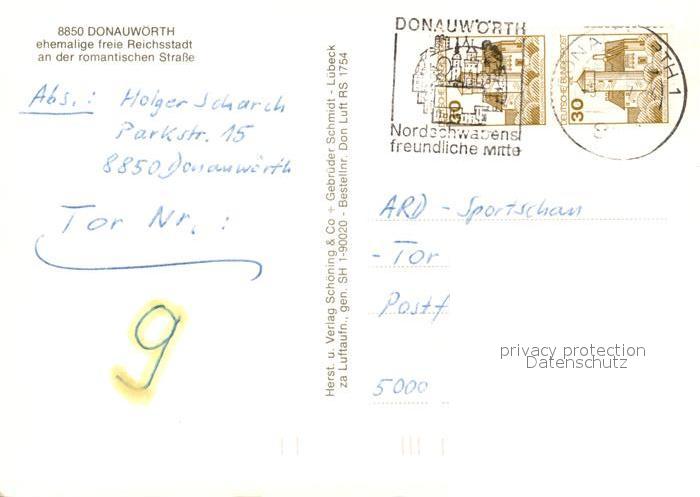 8850 DONAUWÖRTH
ehemalige freie Reichsstadt
an der romantischen Straße
Abs.: Holger Scharch
Parkstr. 15
8850 Donauwörth
Tor Nr. :
9
Herst. u. Verlag Schöning & Co + Gebrüder Schmidt - Lübeck
za Luftaufn., gen. SH 1-90020 - Bestellnr. Don Luft RS 1754
DONAUWÖRTH
Nordschwabens
freundliche Mitte
30
DEUTSCHE BUNDESPOST
30
ARD - Sportschau
- Tor
Postf
5000
privacy protection
Datenschutz